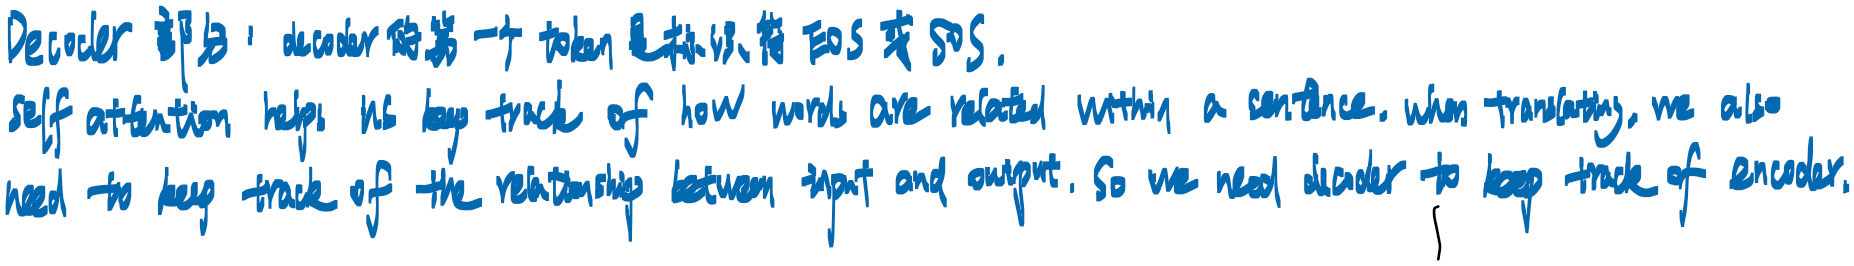 Decoder 部分: decoder 的第一个 token 是标识符 EOS 或 SOS.
self attention helps us keep track of how words are related within a sentence. when translating, we also
need to keep track of the relationship between input and output. So we need decoder to keep track of encoder.